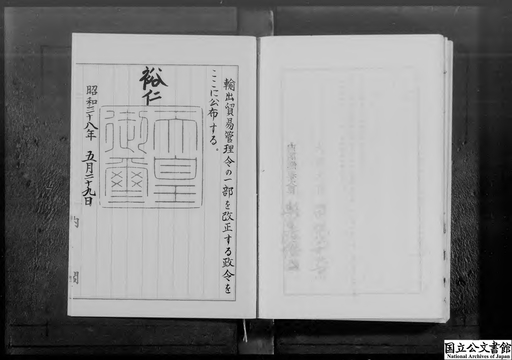 輸出貿易管理令の一部を改正する政令を
ここに公布する。
裕仁
天皇
御璽
昭和二十八年 五月二十九日
内閣
国立公文書館
National Archives of Japan